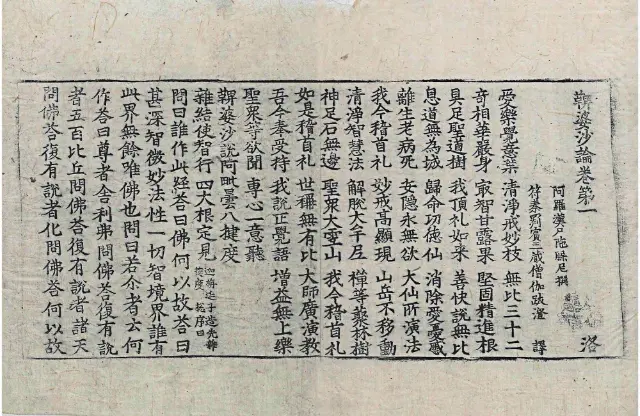 鞞婆沙論卷第一 洛
阿羅漢尸陁槃尼撰
符秦罽賓三藏僧伽跋澄 譯
愛樂覺意葉 清淨戒妙枝 無比三十二
奇相華嚴身 㝡智甘露果 堅固精進根
具足聖道樹 我頂礼如來 善快說無比
息道無為城 歸命功德仙 消除愛憂慼
離生老病死 安隱永無欲 大仙所演法
我今稽首礼 妙戒高顯現 山岳不移動
清淨智慧法 解脫大千頂 禪等藥林樹
神足石無邊 聖衆大雪山 我今稽首礼
如是稽首礼 世稱無有比 大師廣演教
吾今奉受持 我說正覺語 增益無上樂
聖衆等欲聞 專心一意聽
鞞婆沙說阿毗曇八揵度
雜結使智行四大根定見 迦旃延子造先
問曰誰作此經荅曰佛何以故荅曰
甚深智微妙法性一切智境界誰有
此界無餘唯佛也問曰若尒者云何
作荅曰尊者舍利弗問佛荅復有說
者五百比丘問佛荅復有說者諸天
問佛荅復有說者化問佛荅何以故